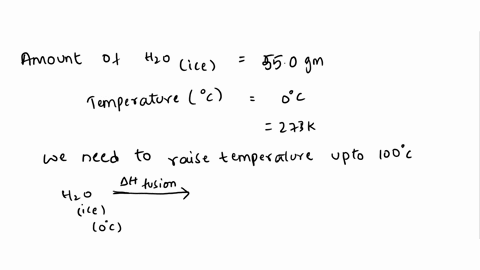 Amount of H2O (ice) = 55.0 gm
Temperature (°C) = 0°C
= 273K
we need to raise temperature upto 100°c
H2O ΔH fusion
(ice)
(0°C)